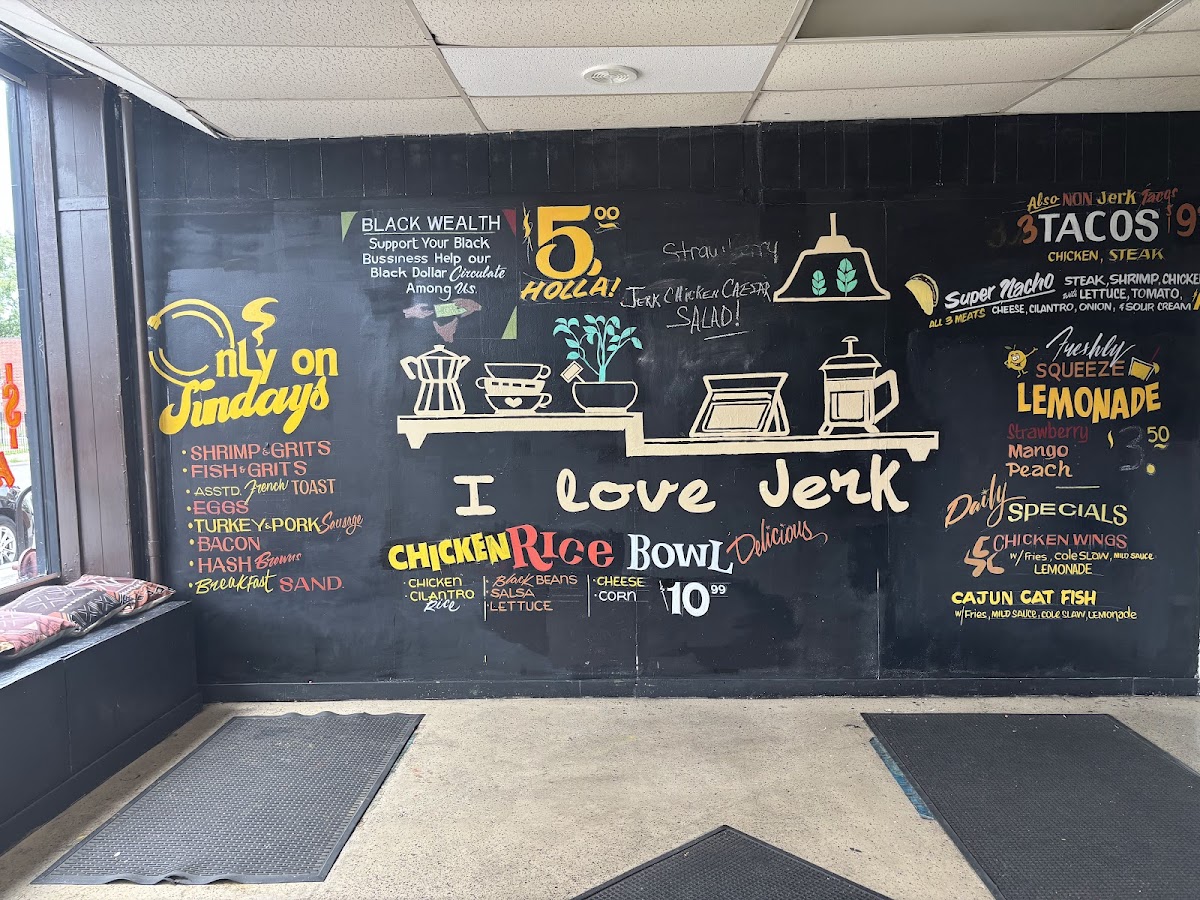 Only on
Sundays
• SHRIMP & GRITS
• FISH & GRITS
• ASSTD. French TOAST
• EGGS
• TURKEY & PORK Sausage
• BACON
• HASH Browns
• Breakfast SAND.
BLACK WEALTH
Support Your Black
Bussiness Help our
Black Dollar Circulate
Among Us.
5.00
HOLLA!
Strawberry
JERK CHICKEN CAESAR
SALAD!
I love Jerk
CHICKEN RICE BOWL Delicious
• CHICKEN
• CILANTRO
Rice
• Black BEANS
• SALSA
• LETTUCE
• CHEESE
• CORN
$10.99
Also NON Jerk Tacos
3 TACOS $9
CHICKEN, STEAK
Super Nacho
ALL 3 MEATS
STEAK, SHRIMP, CHICKEN
with LETTUCE, TOMATO,
CHEESE, CILANTRO, ONION, & SOUR CREAM
Freshly
SQUEEZE
LEMONADE
Strawberry
Mango
Peach
$3.50
Daily SPECIALS
5 PC CHICKEN WINGS
W/ Fries, COLE SLAW, MILD SAUCE
LEMONADE
CAJUN CAT FISH
W/ Fries, MILD SAUCE, COLE SLAW, LEMONADE